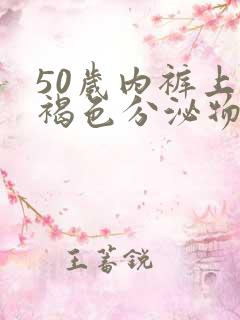 50歳内裤上
褐色分泌物
王蓄锐